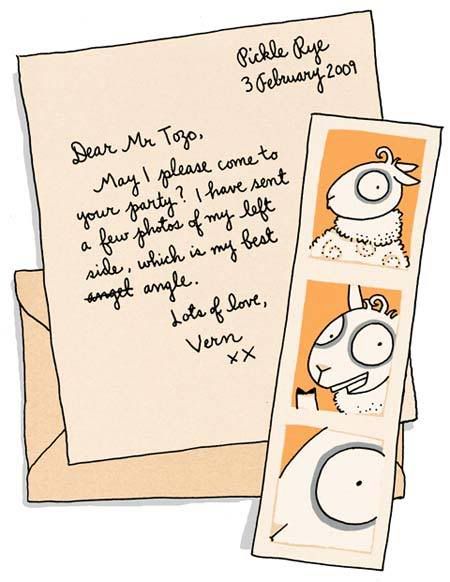 Pickle Rye
3 February 2009
Dear Mr Tozo,
May I please come to
your party? I have sent
a few photos of my left
side, which is my best
angel angle.
Lots of love,
Vern
xx